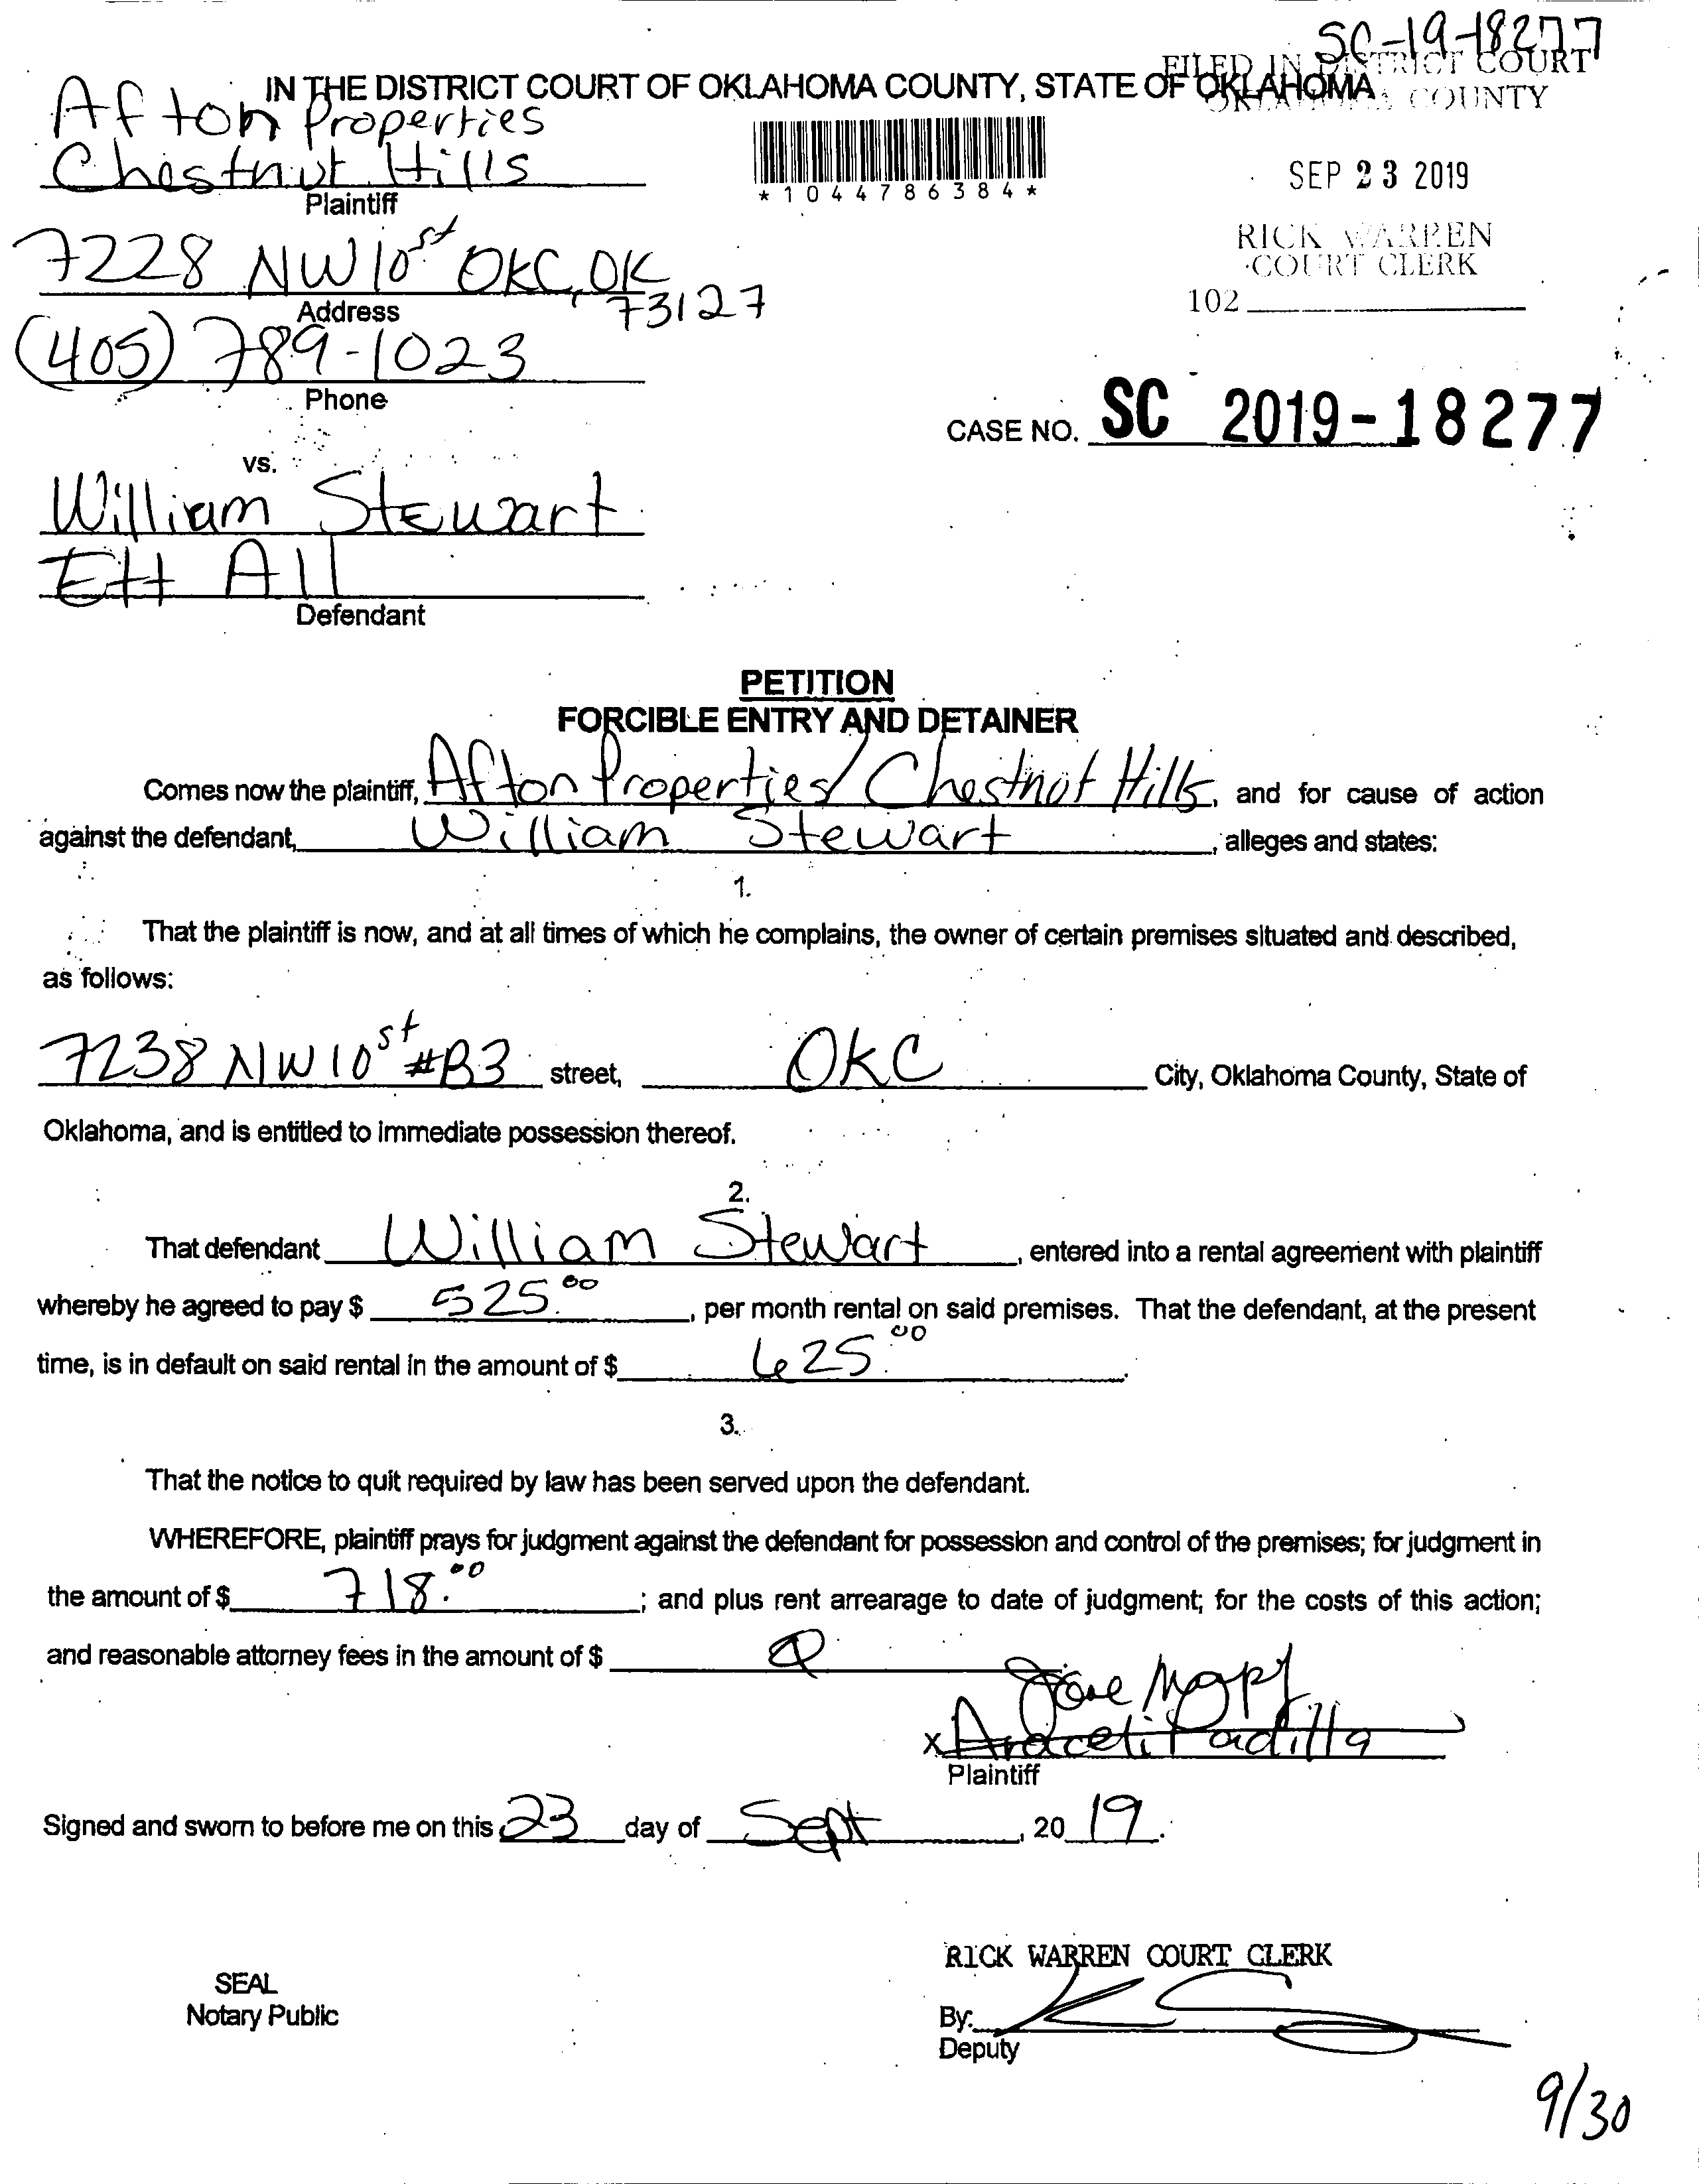 SC-19-18277
IN THE DISTRICT COURT OF OKLAHOMA COUNTY, STATE OF OKLAHOMA
FILED IN DISTRICT COURT
OKLAHOMA COUNTY
Afton Properties
Chestnut Hills
Plaintiff
*1044786384*
SEP 23 2019
7228 NW 10st OKC, OK
73127
Address
RICK WARREN
COURT CLERK
102
(405) 789-1023
Phone
CASE NO. SC 2019-18277
vs.
William Stewart
Ett All
Defendant
PETITION
FORCIBLE ENTRY AND DETAINER
Comes now the plaintiff, Afton Properties/Chestnut Hills, and for cause of action
against the defendant, William Stewart, alleges and states:
1.
That the plaintiff is now, and at all times of which he complains, the owner of certain premises situated and described,
as follows:
7238 NW 10st #B3 street, OKC City, Oklahoma County, State of
Oklahoma, and is entitled to immediate possession thereof.
2.
That defendant William Stewart, entered into a rental agreement with plaintiff
whereby he agreed to pay $ 525.00, per month rental on said premises. That the defendant, at the present
time, is in default on said rental in the amount of $ 625.00.
3.
That the notice to quit required by law has been served upon the defendant.
WHEREFORE, plaintiff prays for judgment against the defendant for possession and control of the premises; for judgment in
the amount of $ 718.00; and plus rent arrearage to date of judgment; for the costs of this action;
and reasonable attorney fees in the amount of $
x Araceli Padilla
Plaintiff
Signed and sworn to before me on this 23 day of Sept, 2019.
RICK WARREN COURT CLERK
SEAL
Notary Public
By:
Deputy
9/30